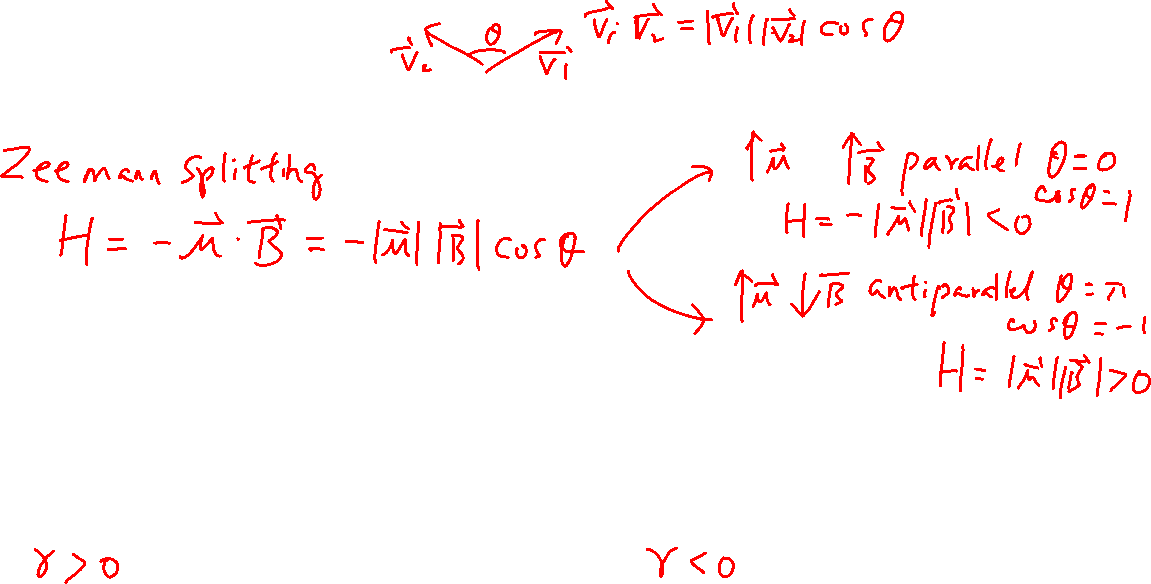 V⃗₂ θ V⃗₁ V⃗₁· V⃗₂ = |V⃗₁||V⃗₂| cos θ
Zeemann Splitting
H = - μ⃗ · B⃗ = - |μ⃗| |B⃗| cos θ
↑μ⃗ ↑B⃗ parallel θ = 0
cosθ = 1
H = - |μ⃗||B⃗| < 0
↑μ⃗ ↓B⃗ antiparallel θ = π
cosθ = -1
H = |μ⃗||B⃗| > 0
γ > 0 γ < 0